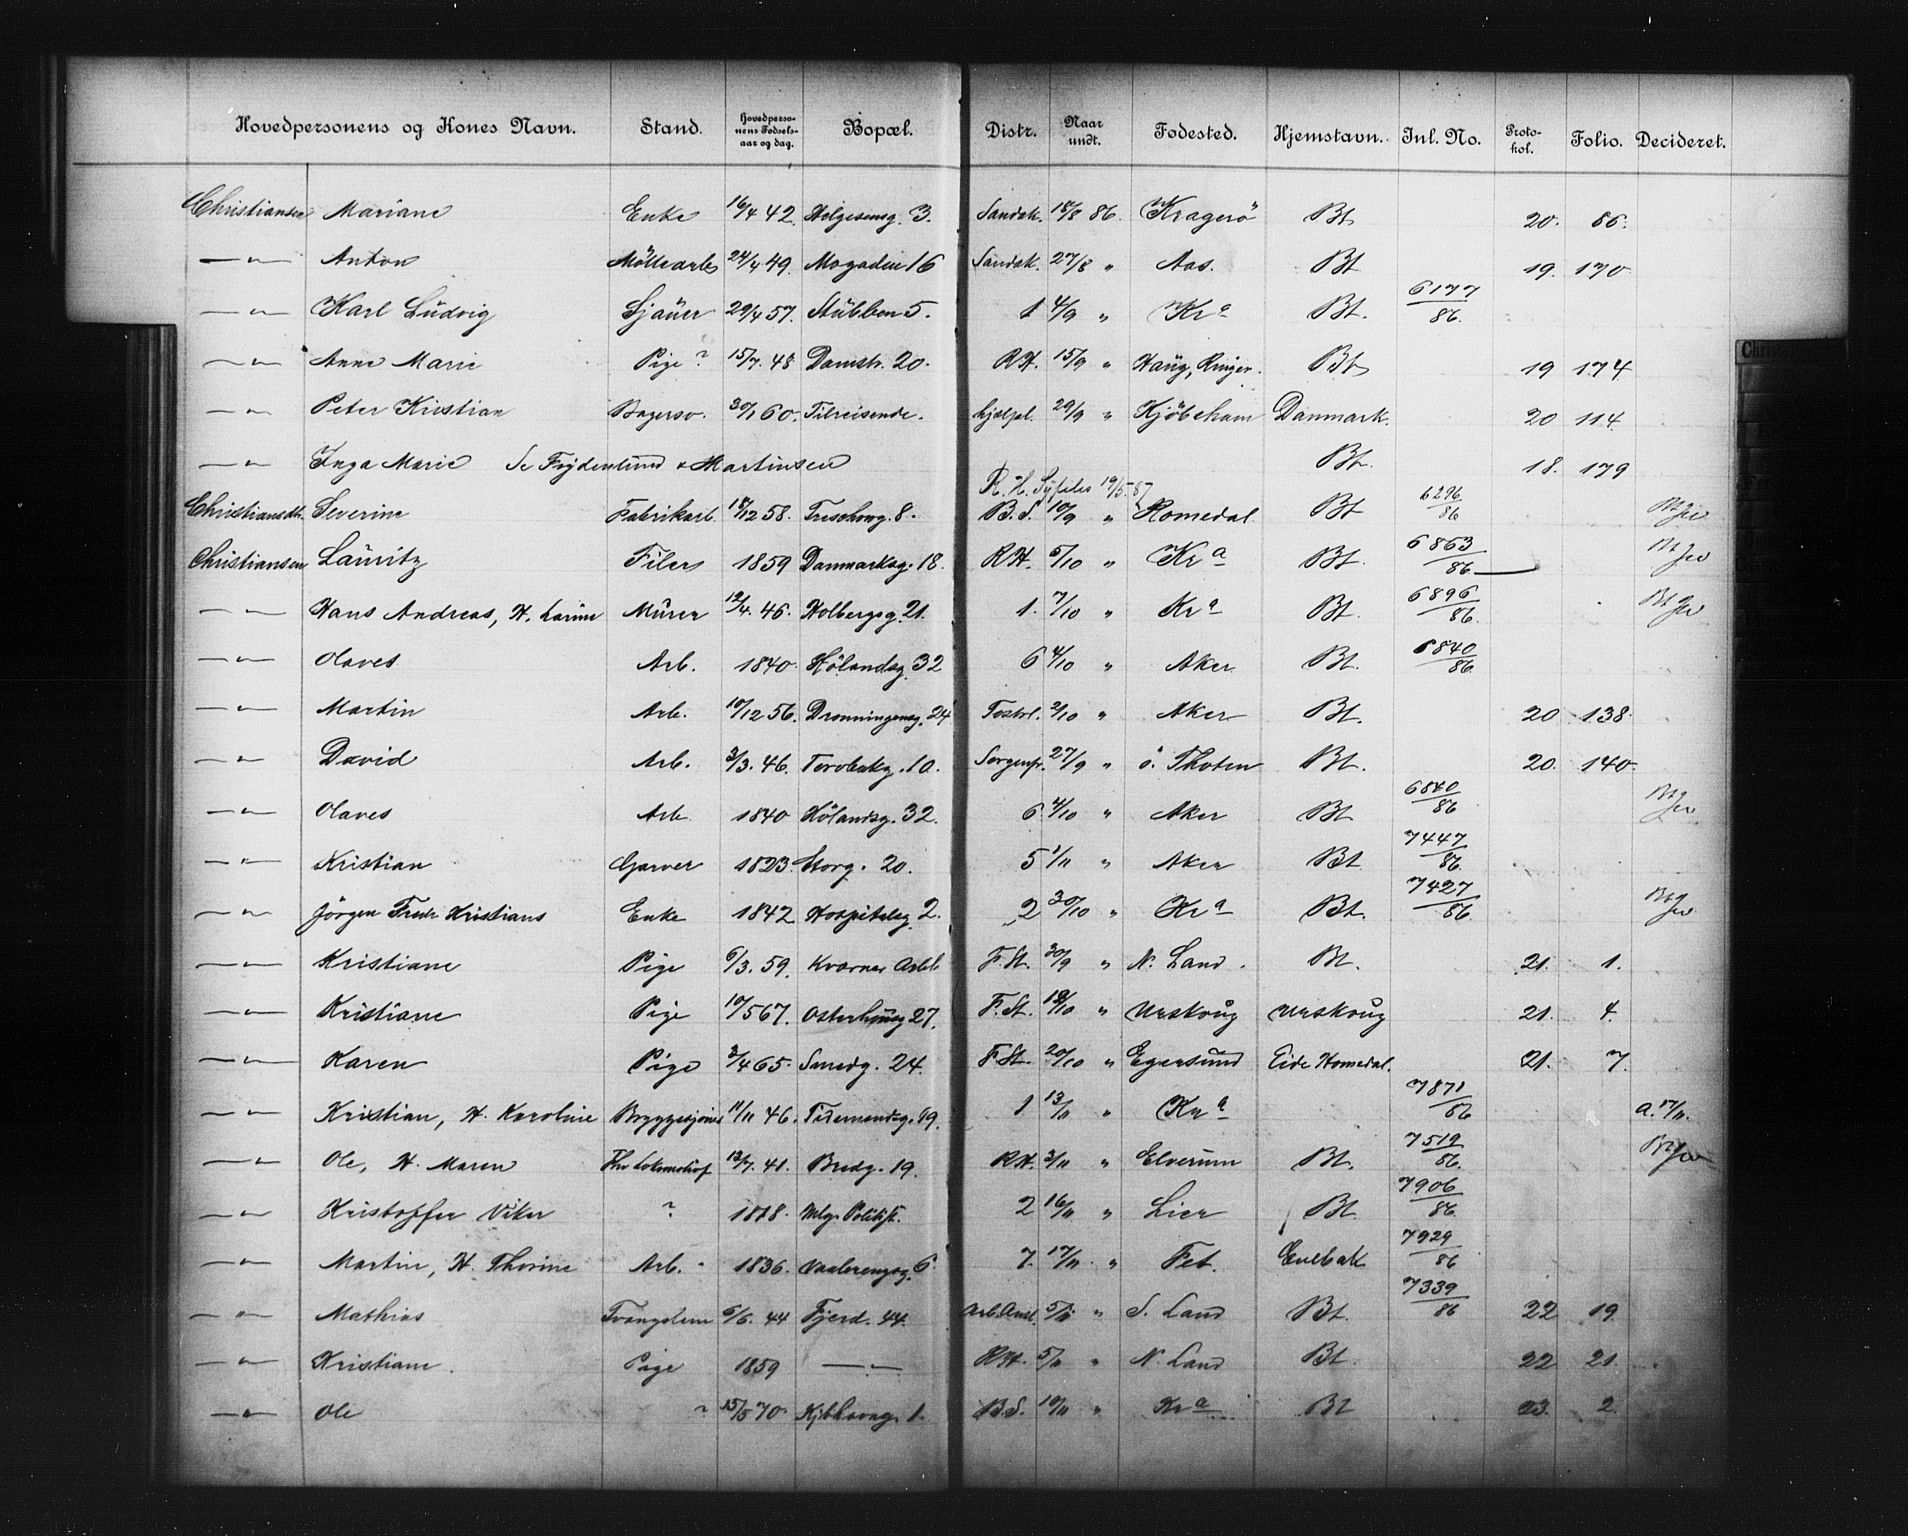 Hovedpersonens og Kones Navn. Stand. Hovedpersonens Fødselsaar og dag. Bopæl. Distr. Naar undt. Fødested. Hjemstavn. Inl. No. Protokol. Folio. Decideret.
Christiansen Mariane Enke 16/4 42. Helgesensg. 3. Sandak. 18/8 86. Kragerö Bt 20. 86.
—"— Anton Möllearb 24/4 49. Mogaden 16 Sandak. 27/8 " Aas. Bt 19. 170
—"— Karl Ludvig Sjauer 29/4 57. Stubben 5. 1 4/9 " Kra Bt. 6177/86.
—"— Anne Marie Pige ? 15/7. 48 Damstr. 20. RH. 15/9 " Haug, Ringer. Bt 19 174
—"— Peter Kristian Bagersv. 30/1 60. Tilreisende. hjælpel. 29/9 " Kjöbeham Danmark. 20 114
—"— Inga Marie Se Frydenlund & Martinsen Bt. 18. 179
R. H. Syfilis 19/5.87
Christiansdt. Severine Fabrikarb. 18/12 58. Treschowg. 8. B.S. 10/9 " Romedal Bt 6296/86
Christiansen Lauritz Filer 1859 Danmarksg. 18. RH. 5/10 " Kra Bt. 6863/86
—"— Hans Andreas, H. Larine Murer 12/4. 46. Holbergsg. 21. 1. 7/10 " Kra Bt. 6896/86.
—"— Olaves Arb. 1840 Hölandsg. 32 6 4/10 " Aker Bt. 6840/86.
—"— Martin Arb. 10/12 56. Dronningensg. 24 2/10 " Aker Bt. 20 138
—"— David Arb. 3/3. 46. 10. Sorgenfr. 27/9 " ö. Thoten Bt. 20. 140.
—"— Olaves Arb 1840 Hölandsg. 32. 6 4/10 " Aker Bt 6840/86
—"— Kristian Garver 1823 Storg. 20. 5 1/11 " Aker Bt 7447/86.
—"— Jörgen Fredr Kristians Enke 1842 Hospitalsg. 2. 2 30/10 " Kra Bt. 7427/86.
—"— Kristiane Pige 6/3. 59. Kværner Arbb F.St. 30/9 " N. Land. Bt. 21. 1.
—"— Kristiane Pige 10/5 67. Osterhausg 27. F.St. 18/10 " Urskoug Urskoug 21. 4.
—"— Karen Pige 3/4 65. Smedg. 24. F.St. 20/10 " Egersund Eide Homedal. 21. 7.
—"— Kristian, H. Karoline Bryggesjouer 11/11 46. Tidemandsg. 19. 1 13/11 " Kra 7871/86 a. 17/11.
—"— Ole, H. Maren 13/7. 41. Bredg. 19. RH. 3/11 " Elverum Bt. 7519/86.
—"— Kristoffer Viker ? 1818. 2 16/11 " Lier Bt. 7906/86.
—"— Martin, H. Thorine Arb. 1836. Vaalerengsg. 6 7. 17/11 " Fet. Enebak 7929/86
—"— Mathias Tvangslem 6/6. 44 Fjerd. 44. Arb.Anst. 5/11 " S. Land Bt. 7339/86 22 19.
—"— Kristiane. Pige 1859 —"— RH. 5/11 " N. Land Bt. 22 21.
—"— Ole ? 15/5 70 Kjbhavng. 1. B.S. 10/11 " Kra Bt 23. 2.